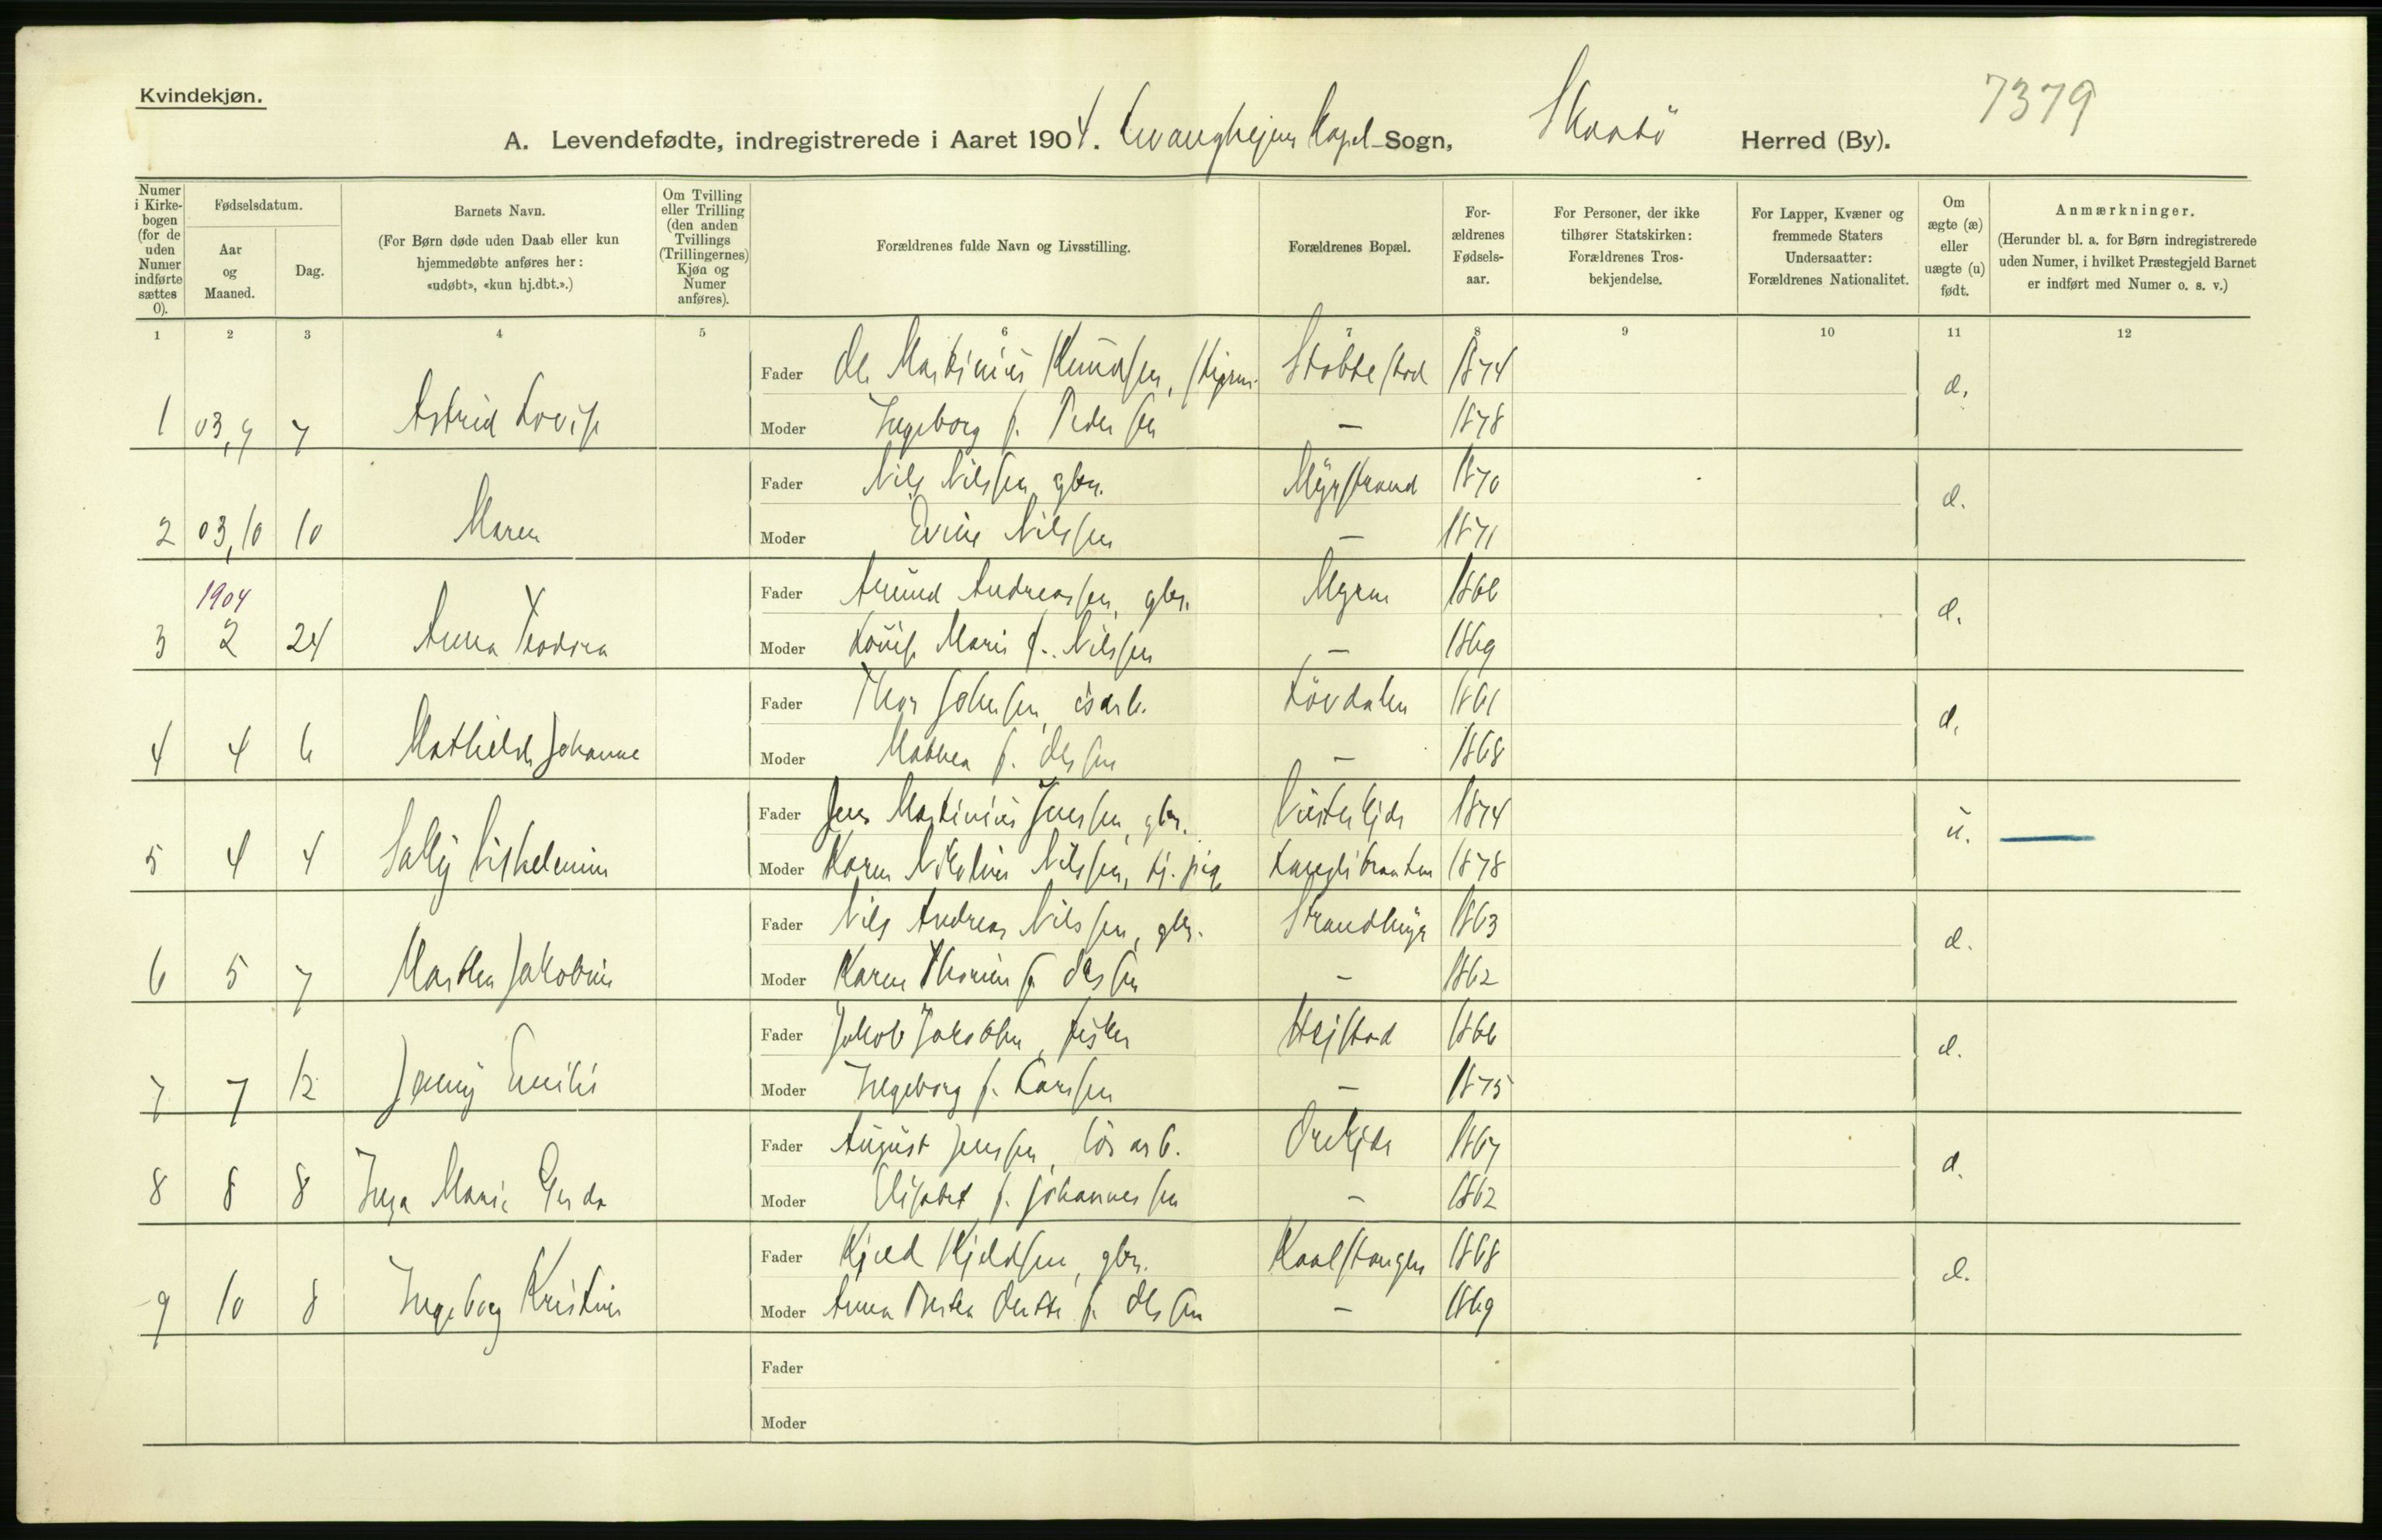 Kvindekjøn.
7379
A. Levendefødte, indregistrerede i Aaret 1904. Levangheiens Kapel Sogn, Skaatö Herred (By).
Numer i Kirkebogen (for de uden Numer indførte sættes 0).
Fødselsdatum.
Aar og Maaned.
Dag.
Barnets Navn.
(For Børn døde uden Daab eller kun hjemmedøbte anføres her: «udøbt», «kun hj.dbt.».)
Om Tvilling eller Trilling (den anden Tvillings (Trillingernes) Kjøn og Numer anføres).
Forældrenes fulde Navn og Livsstilling.
Forældrenes Bopæl.
Forældrenes Fødselsaar.
For Personer, der ikke tilhører Statskirken: Forældrenes Trosbekjendelse.
For Lapper, Kvæner og fremmede Staters Undersaatter: Forældrenes Nationalitet.
Om ægte (æ) eller uægte (u) født.
Anmærkninger.
(Herunder bl. a. for Børn indregistrerede uden Numer, i hvilket Præstegjeld Barnet er indført med Numer o. s. v.)
1 2 3 4 5 6 7 8 9 10 11 12
Fader Ole Martinius Knudsen, Støbbestad 1874 æ.
1 03,9 7 Astrid Lovise Moder Ingeborg f. Pedersen — 1878
Fader Nils Nilssen, gbr. Myrstrand 1870 æ.
2 03,10 10 Maren Moder Evine Nilssen — 1871
1904
Fader Amund Andreassen, gbr. Myren 1866 æ.
3 2 24 Anna Teodora Moder Lovise Marie f. Nilssen — 1869
Fader Thor Johnsen, isarb. Løvdalen 1861 æ.
4 4 6 Mathilde Johanne Moder Mathea f. Olssen — 1868
Fader Jens Martinius Jenssen, gbr. 1874 u.
5 4 4 Sally Vilhelmine Moder Karen Nikoline Nilssen, tj. pige 1878
Fader Nils Andreas Nilssen, gbr. Strandhøyr 1863 æ.
6 5 7 Marthea Jakobine Moder Karen Thomine f. Olssen — 1862
Fader Jakob Jakobsen, fisker 1866 æ.
7 7 12 Jenny Emilie Moder Ingeborg f. Larssen — 1875
Fader August Jenssen, løsarb. 1867 æ.
8 8 8 Inga Marie Gerda Moder Elisabet f. Johannessen — 1862
Fader Kjeld Kjeldsen, gbr. Kaalstangen 1868 æ.
9 10 8 Ingeborg Kristine Moder Anna f. Olssen — 1869
Fader
Moder